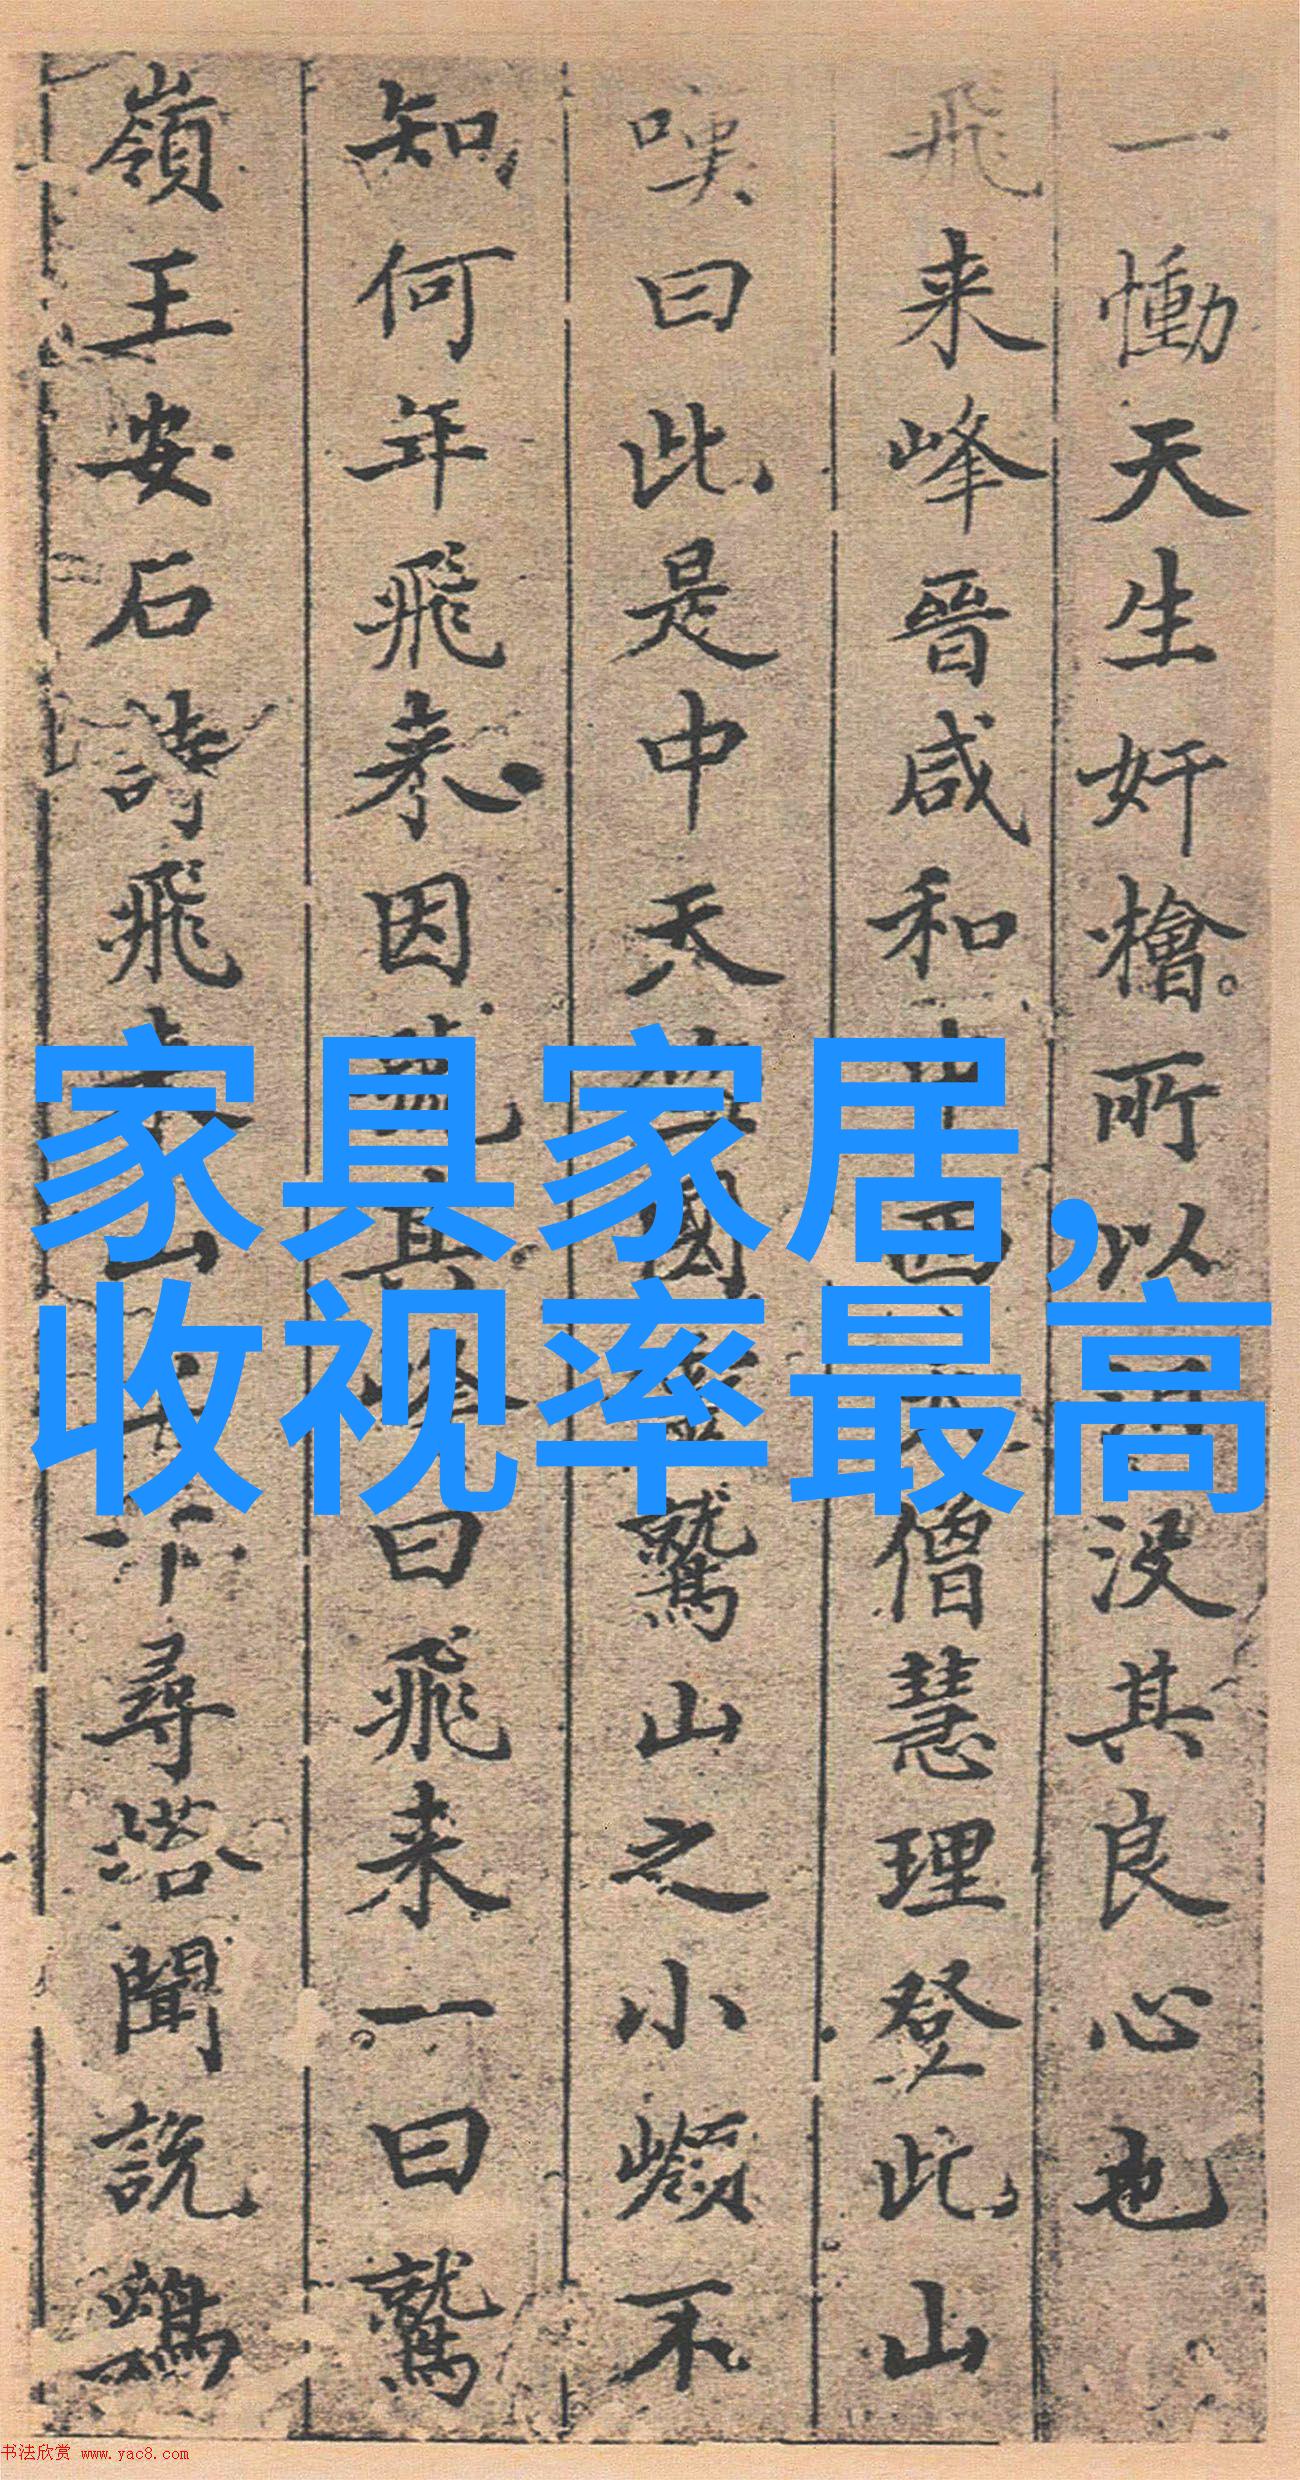 一慟天生奸檜所以 没其良心也
飛来峰晉咸和中西 僧慧理登此山
嘆曰此是中天 國靈鷲山之小嶺不
知何年飛来因 其峰曰飛来一曰鷲
嶺王安石詩飛来山上千尋塔聞說鷄
家具家居，
收视率最高
书法欣赏 www.yac8.com